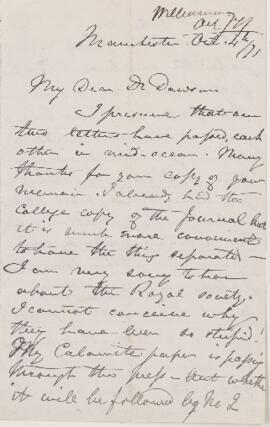 Manchester Oct. 4th /71
My Dear Dr Dawson
I presume that our
two letters have passed each
other in mid-ocean. Many
thanks for your copy of your
memoir. I already had the
College copy of the Journal but
it is much more convenient
to have the thing separated —
I am very sorry to hear
about the Royal Society.
I cannot conceive why
they have been so stupid!
My Calamite paper is passing
through the press — but whether
it will be followed by No 2